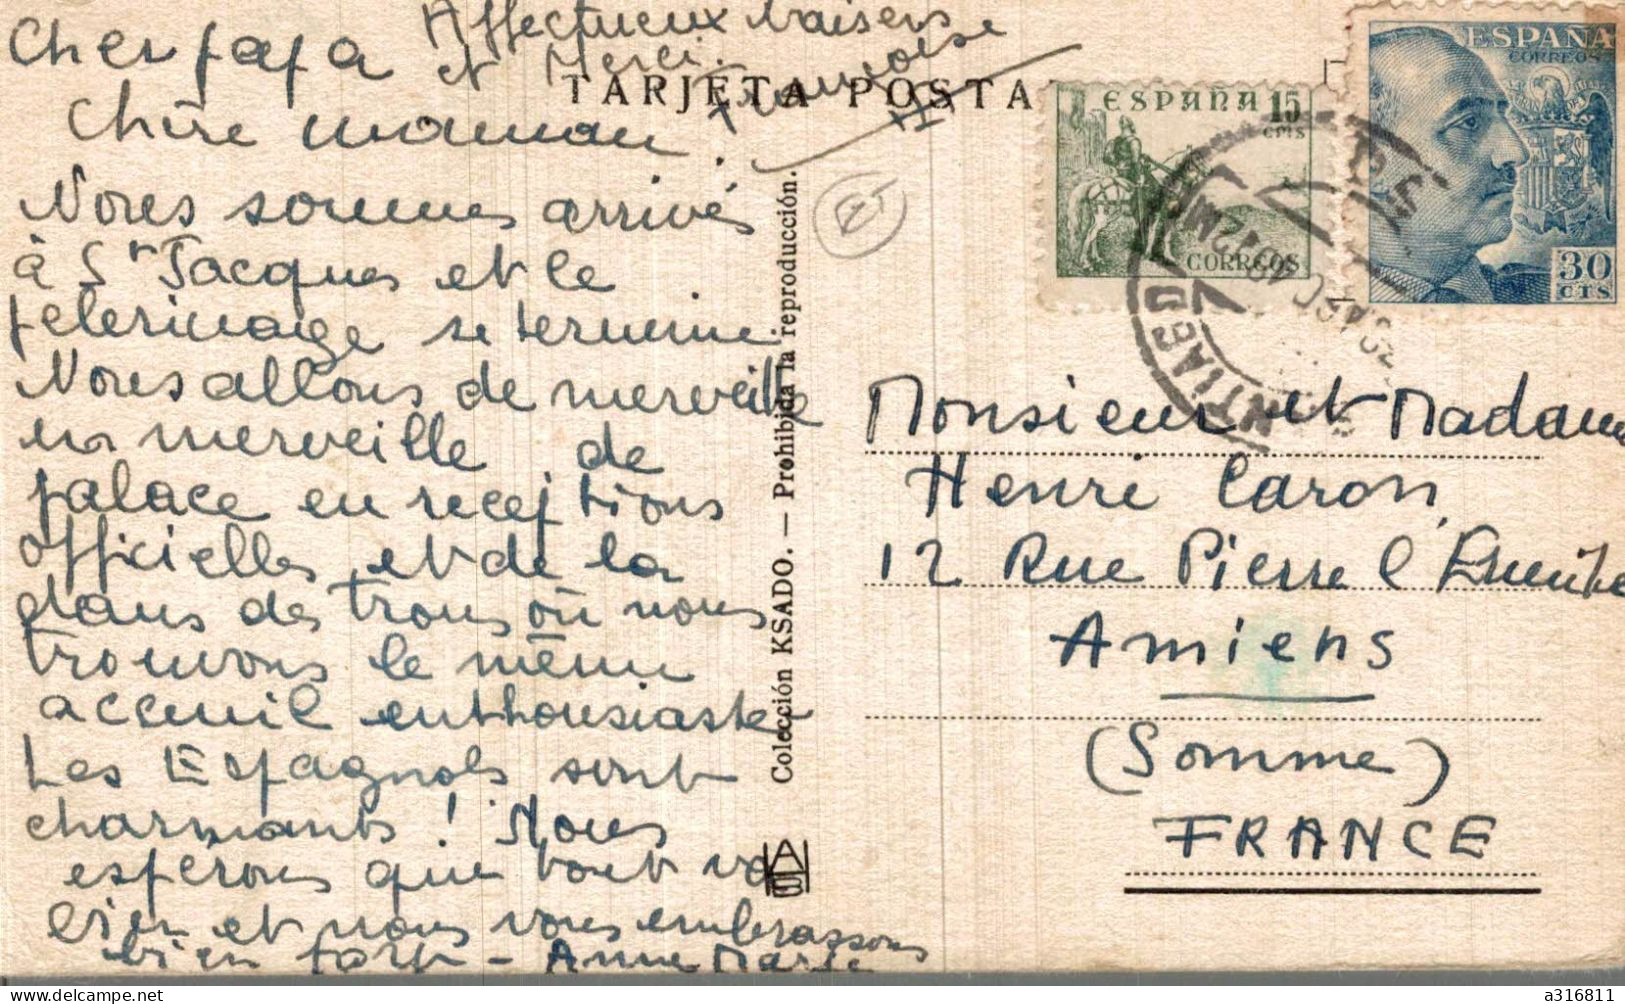 Affectueux baisers
et Merci.
Cher papa
Chère maman.
Nous sommes arrivés
à St Jacques et le
pelerinage se termine
Nous allons de merveille
en merveille, de
palace en receptions
officielles et de la
dans des trous où nous
trouvons le même
acceuil enthousiaste
Les Espagnols sont
charmants! Nous
espérons que tout va
bien et nous vous embrassons
bien fort - Anne Marie
TARJETA POSTA
Colección KSADO. — Prohibida la reproducción.
ESPAÑA 15
cms
CORREOS
ESPAÑA
CORREOS
30
CTS
Monsieur et Madame
Henri Caron,
12 Rue Pierre l'Ermite
Amiens
(Somme)
FRANCE
a316811